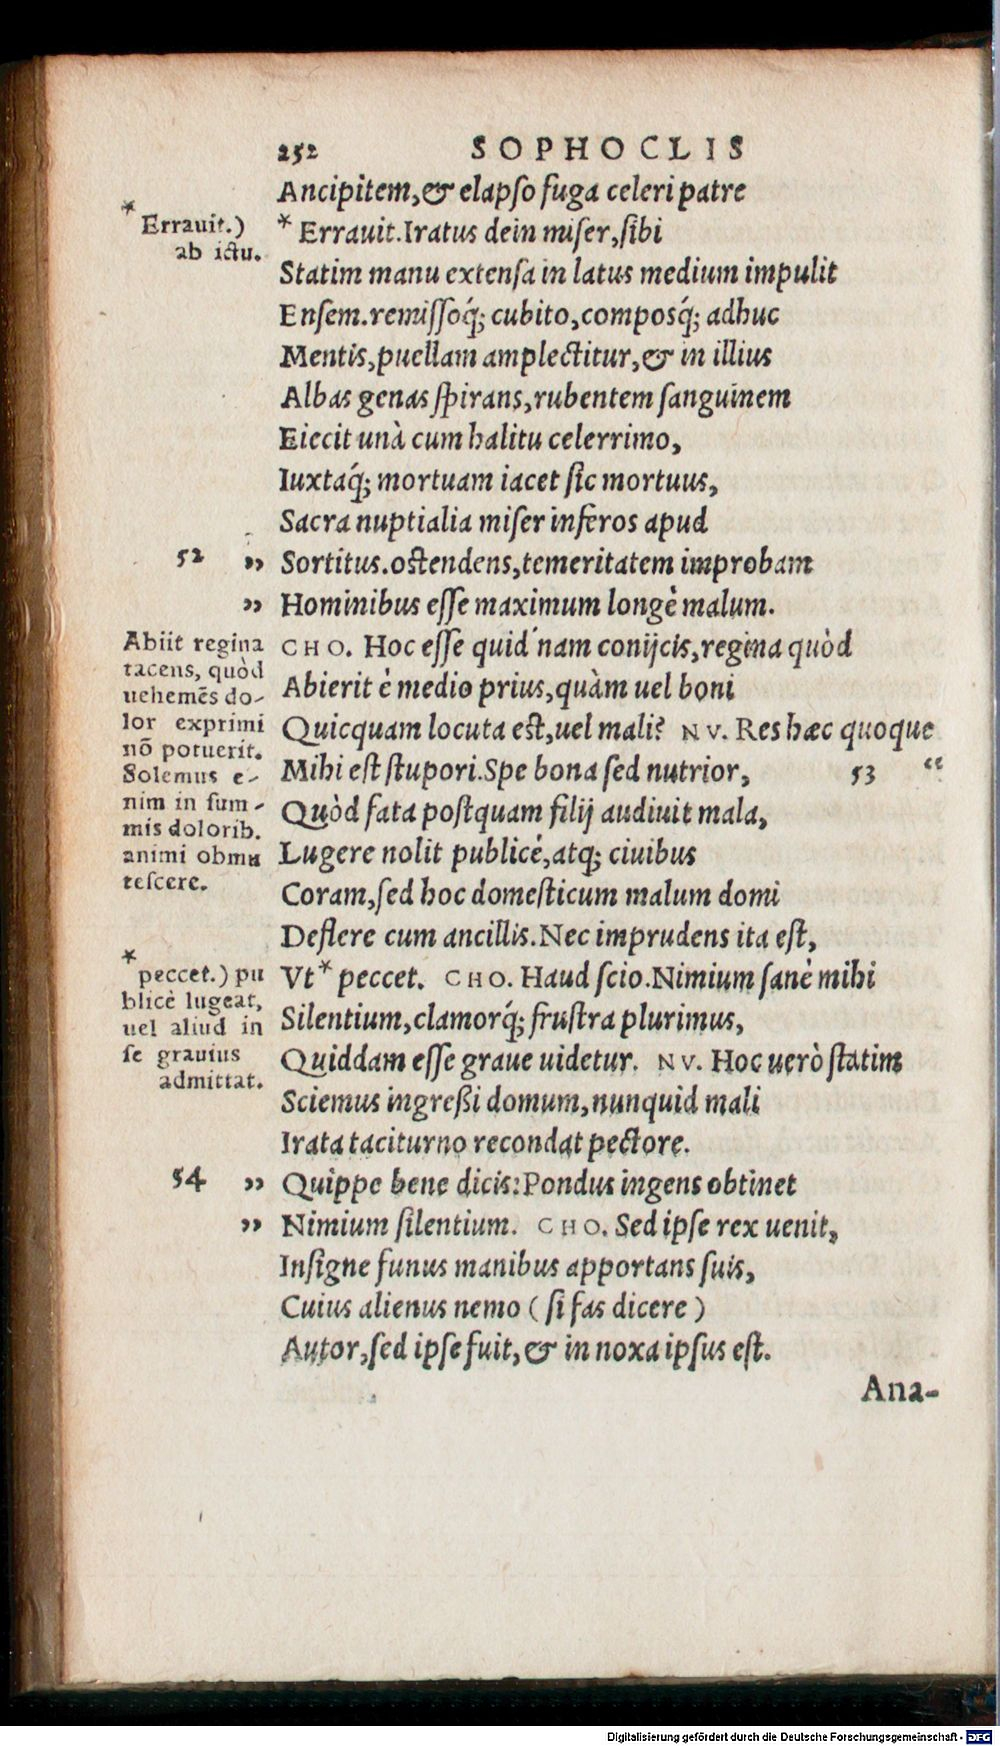 252 SOPHOCLIS
Ancipitem,& elapſo fuga celeri patre
* Errauit.Iratus dein miſer,ſibi
Statim manu extenſa in latus medium impulit
Enſem.remiſſoq́; cubito,composq́; adhuc
Mentis,puellam amplectitur,& in illius
Albas genas ſpirans,rubentem ſanguinem
Eiecit unà cum halitu celerrimo,
Iuxtaq́; mortuam iacet ſic mortuus,
Sacra nuptialia miſer inferos apud
52 ” Sortitus.oſtendens,temeritatem improbam
” Hominibus eſſe maximum longè malum.
CHO. Hoc eſſe quid'nam conijcis,regina quòd
Abierit è medio prius,quàm uel boni
Quicquam locuta eſt,uel mali? NV. Res hæc quoque
Mihi eſt ſtupori.Spe bona ſed nutrior, 53 “
Quòd fata poſtquam filij audiuit mala,
Lugere nolit publicè,atq; ciuibus
Coram,ſed hoc domeſticum malum domi
Deflere cum ancillis.Nec imprudens ita eſt,
Vt * peccet. CHO. Haud ſcio.Nimium ſanè mihi
Silentium,clamorq́; fruſtra plurimus,
Quiddam eſſe graue uidetur. NV. Hoc uerò ſtatim
Sciemus ingreßi domum,nunquid mali
Irata taciturno recondat pectore.
54 ” Quippe bene dicis:Pondus ingens obtinet
” Nimium ſilentium. CHO. Sed ipſe rex uenit,
Inſigne funus manibus apportans ſuis,
Cuius alienus nemo (ſi fas dicere)
Autor,ſed ipſe fuit,& in noxa ipſus eſt.
Ana-
*
Errauit.)
ab ictu.
Abiit regina
tacens, quòd
uehemẽs do-
lor exprimi
nõ potuerit.
Solemus e-
nim in ſum-
mis dolorib.
animi obmu
teſcere.
*
peccet.) pu
blicè lugeat,
uel aliud in
ſe grauius
admittat.
Digitalisierung gefördert durch die Deutsche Forschungsgemeinschaft - DFG